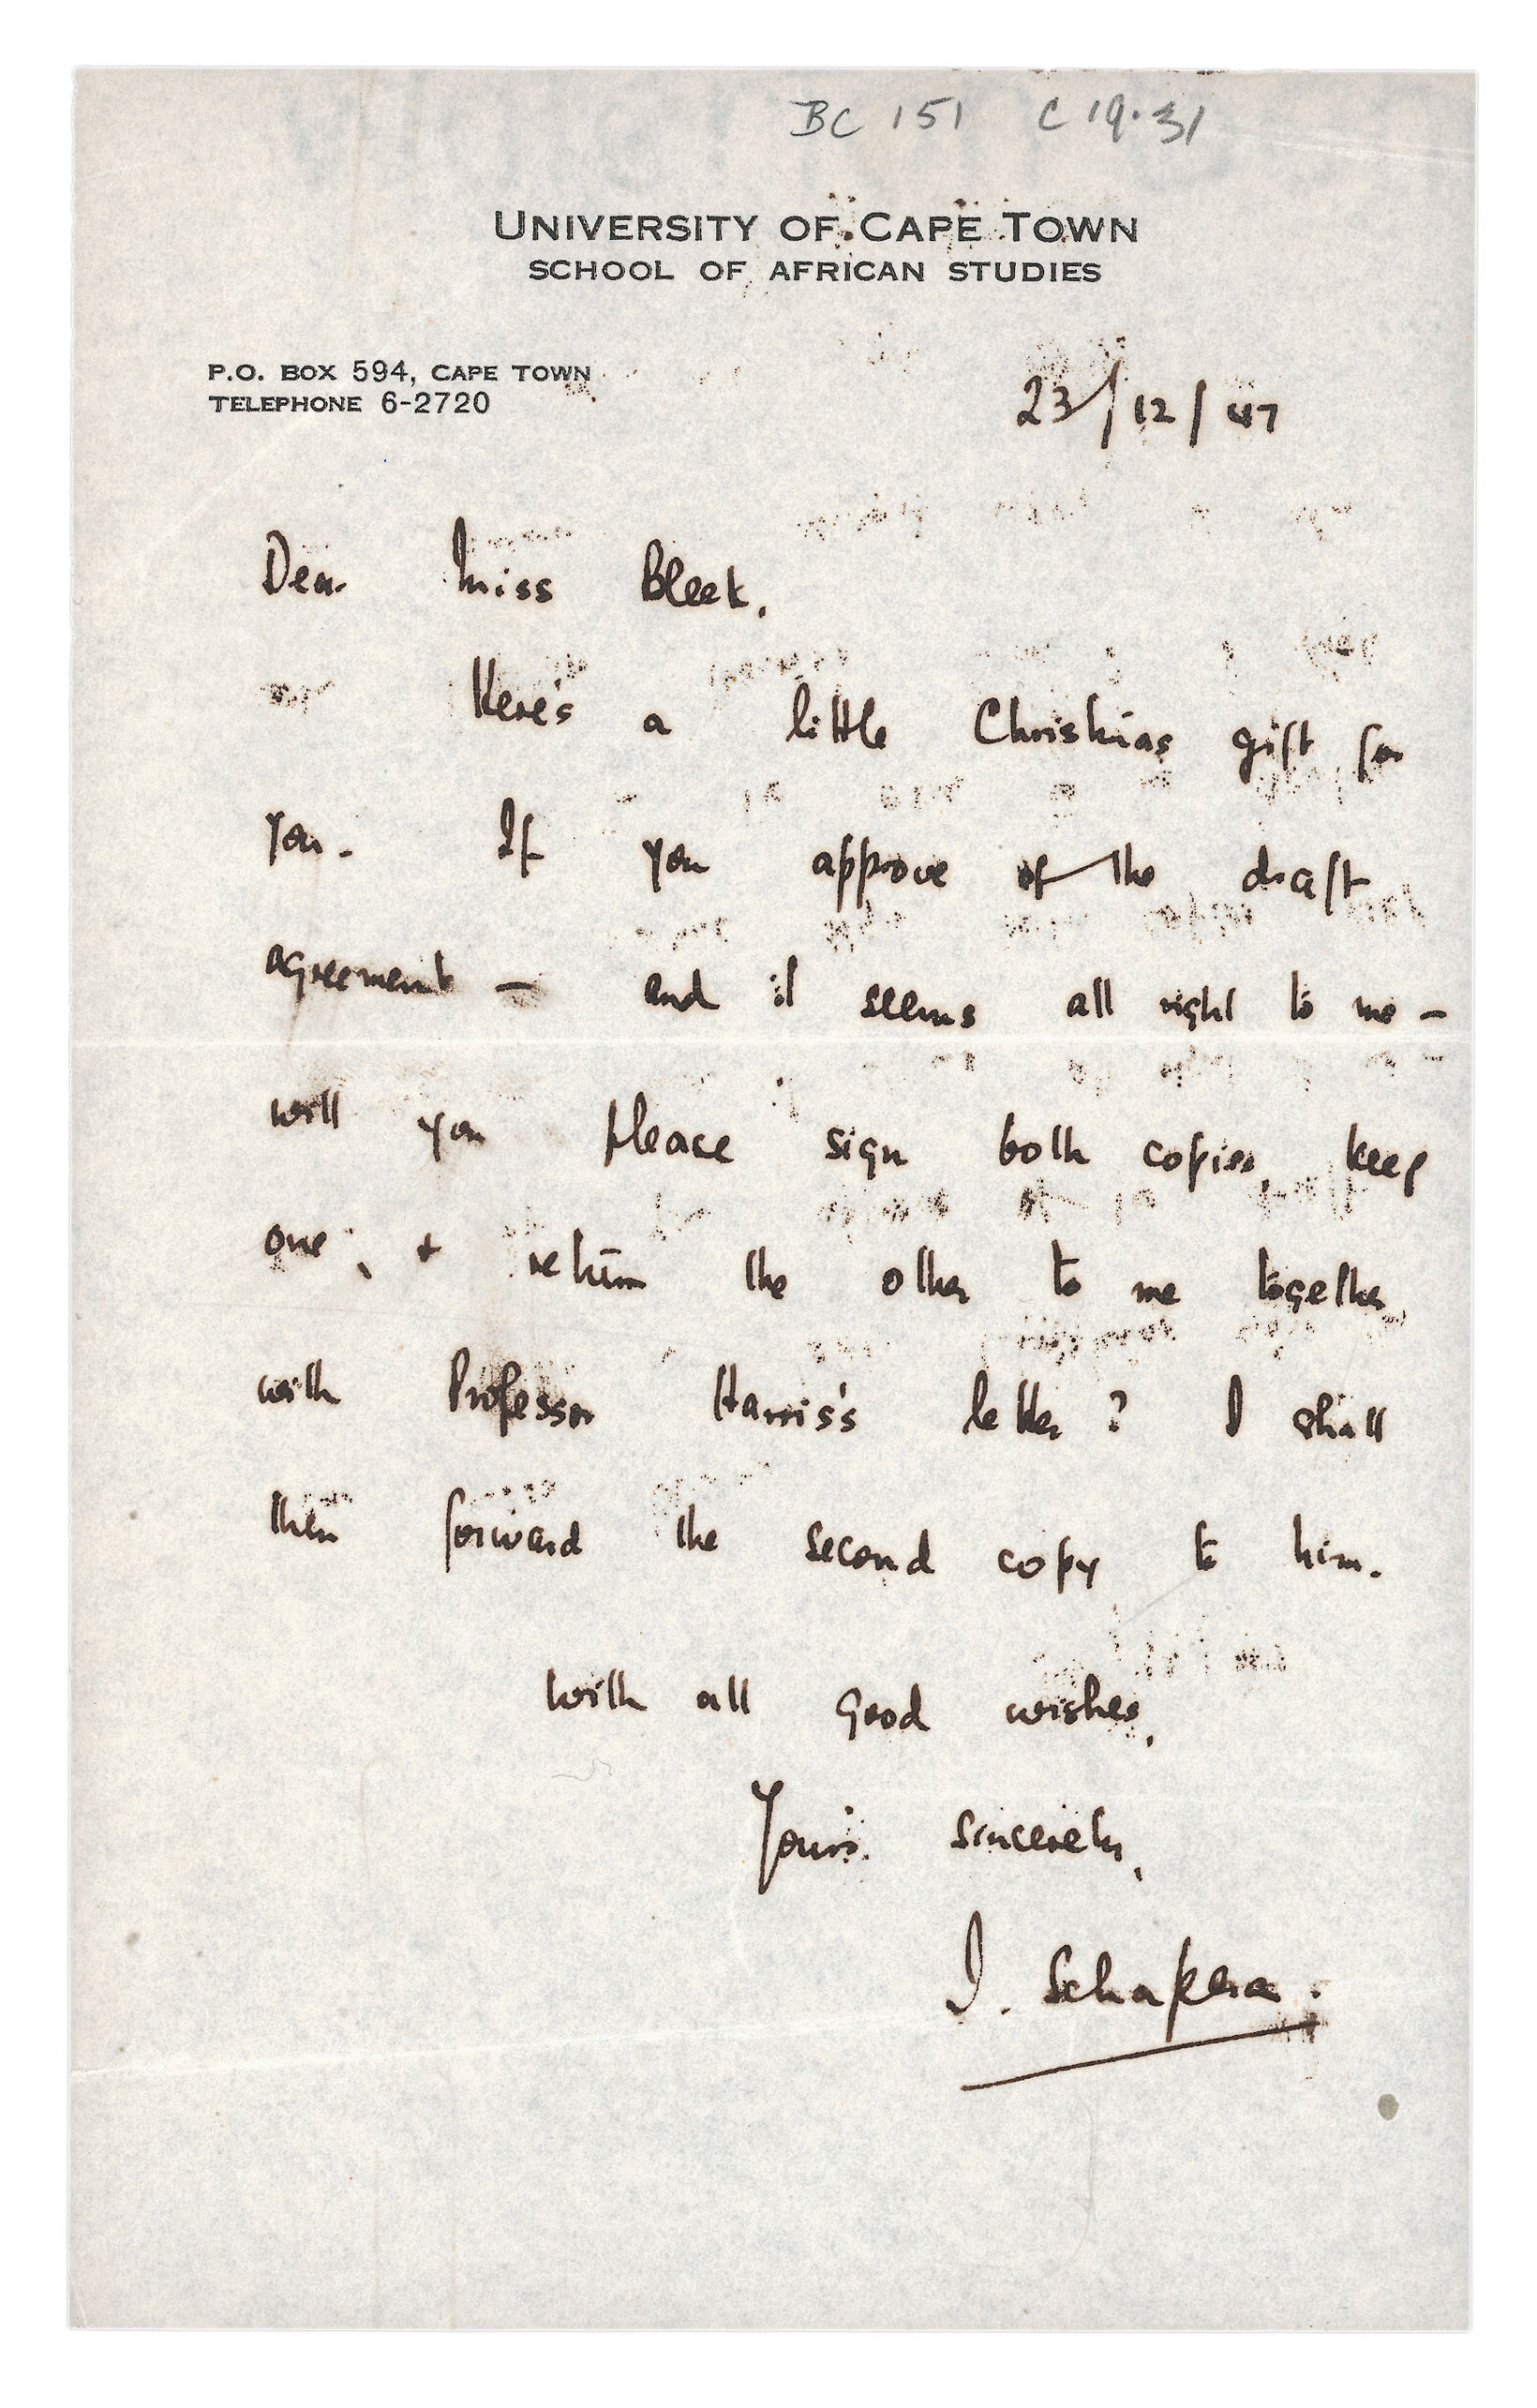 BC 151 C 19.31
UNIVERSITY OF CAPE TOWN
SCHOOL OF AFRICAN STUDIES
P.O. BOX 594, CAPE TOWN
TELEPHONE 6-2720
23/12/47
Dear Miss Bleek,
Here's a little Christmas gift for
you. If you approve of the draft
agreement — and it seems all right to me —
will you please sign both copies, keep
one, + return the other to me together
with Professor Harris's letter? I shall
then forward the second copy to him.
With all good wishes,
Yours sincerely,
I. Schapera.